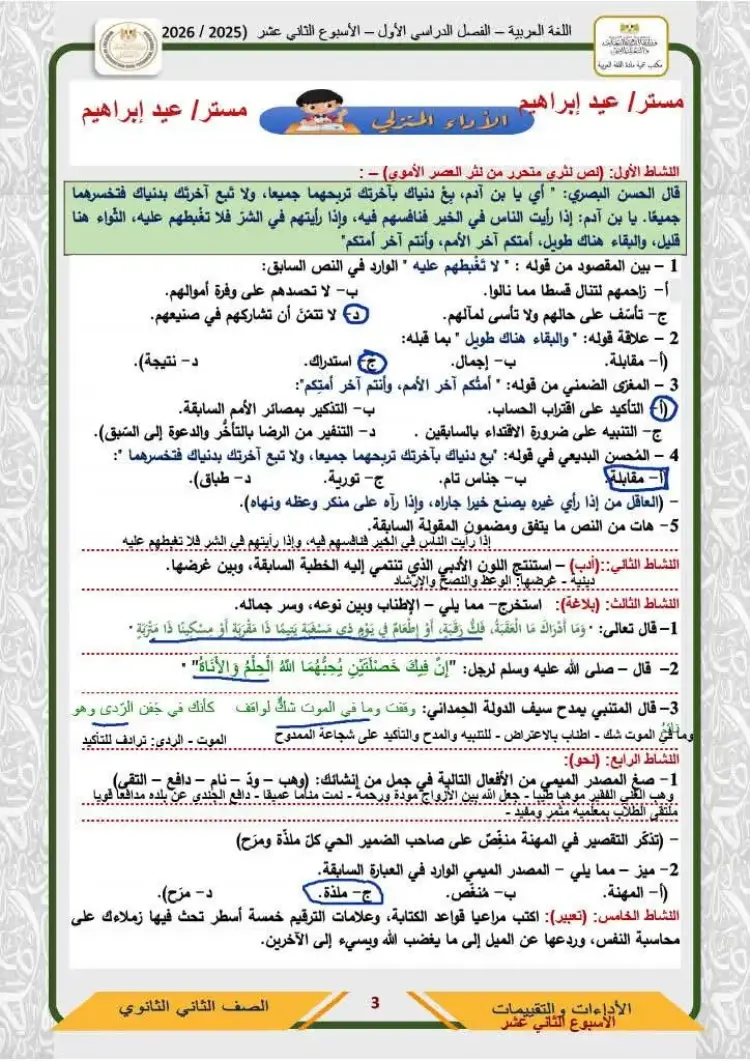 اللغة العربية – الفصل الدراسي الأول – الأسبوع الثاني عشر (2025 / 2026
مكتب تنمية مادة اللغة العربية
مستر/ عيد إبراهيم
الأداء المنزلي
مستر/ عيد إبراهيم
النشاط الأول: (نص نثري متحرر من نثر العصر الأموي) – :
قال الحسن البصري: " أي يا بن آدم، بِعْ دنياك بآخرتك تربحهما جميعا، ولا تبع آخرتك بدنياك فتخسرهما
جميعًا. يا بن آدم: إذا رأيت الناس في الخير فنافسهم فيه، وإذا رأيتهم في الشرّ فلا تغْبطهم عليه، الثّواء هنا
قليل، والبقاء هناك طويل، أمتكم آخر الأمم، وأنتم آخر أمتكم"
1 – بين المقصود من قوله : " لا تَغْبطهم عليه " الوارد في النص السابق:
أ- زاحمهم لتنال قسطا مما نالوا. ب- لا تحسدهم على وفرة أموالهم.
ج- تأسّف على حالهم ولا تأسى لمآلهم. د- لا تتمّنَ أن تشاركهم في صنيعهم.
2 – علاقة قوله: " والبقاء هناك طويل " بما قبله:
(أ- مقابلة. ب- إجمال. ج- استدراك. د- نتيجة).
3 – المغزى الضمني من قوله: " أمتُكم آخر الأمم، وأنتم آخر أمتِكم":
(أ- التأكيد على اقتراب الحساب. ب- التذكير بمصائر الأمم السابقة.
ج- التنبيه على ضرورة الاقتداء بالسابقين . د- التنفير من الرضا بالتأخُّر والدعوة إلى السّبق).
4 – المُحسن البديعي في قوله: "بع دنياك بآخرتك تربحهما جميعا، ولا تبع آخرتك بدنياك فتخسرهما ":
أ- مقابلة ب- جناس تام. ج- تورية. د- طباق).
– (العاقل من إذا رأي غيره يصنع خيرا جاراه، وإذا رآه على منكر وعظه ونهاه).
5- هات من النص ما يتفق ومضمون المقولة السابقة.
إذا رأيت الناس في الخير فنافسهم فيه، وإذا رأيتهم في الشر فلا تغبطهم عليه
النشاط الثاني::(أدب) – استنتج اللون الأدبي الذي تنتمي إليه الخطبة السابقة، وبين غرضها.
دينية - غرضها: الوعظ والنصح والإرشاد
النشاط الثالث: (بلاغة): استخرج- مما يلي – الإطناب وبين نوعه، وسر جماله.
1– قال تعالى: "وَمَا أَدْرَاكَ مَا الْعَقَبَةُ، فَكُّ رَقَبَةٍ، أَوْ إِطْعَامٌ فِي يَوْمٍ ذِي مَسْغَبَةٍ يَتِيمًا ذَا مَقْرَبَةٍ أَوْ مِسْكِينًا ذَا مَتْرَبَةٍ "
2- قال – صلى الله عليه وسلم لرجل: "إِنَّ فِيكَ خَصْلَتَيْنِ يُحِبُّهُمَا اللَّهُ الْحِلْمُ وَالْأَنَاةُ" "
3– قال المتنبي يمدح سيف الدولة الحمداني: وقفت وما في الموت شكٌ لواقف كأنك في جَفن الرّدى وهو
نائمُ
وما في الموت شك - اطناب بالاعتراض - للتنبيه والمدح والتأكيد على شجاعة الممدوح الموت - الردى: ترادف للتأكيد
النشاط الرابع: (نحو):
1- صغ المصدر الميمي من الأفعال التالية في جمل من إنشائك: (وهب – ودّ – نام – دافع – التقى)
وهب الغني الفقير موهبا طيبا - جعل الله بين الأزواج مودة ورحمة - نمت مناما عميقا - دافع الجندي عن بلده مدافعا قويا
ملتقى الطلاب بمعلميه مثمر ومفيد -
– (تذكّر التقصير في المهنة منغِّصٌ على صاحب الضمير الحي كلّ ملذّة ومرَح)
2- ميز – مما يلي – المصدر الميمي الوارد في العبارة السابقة.
(أ- المهنة. ب- مُنغّص. ج- ملذة. د- مرَح).
النشاط الخامس: (تعبير): اكتب مراعيا قواعد الكتابة، وعلامات الترقيم خمسة أسطر تحث فيها زملاءك على
محاسبة النفس، وردعها عن الميل إلى ما يغضب الله ويسيء إلى الآخرين.
الأداءات والتقييمات
الأسبوع الثاني عشر
3
الصف الثاني الثانوي